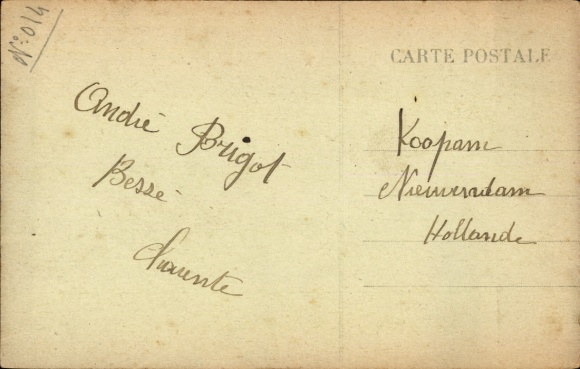 N°: 014
CARTE POSTALE
André Brigot
Bessé
Charente
Koopam
Nieuwendam
Hollande